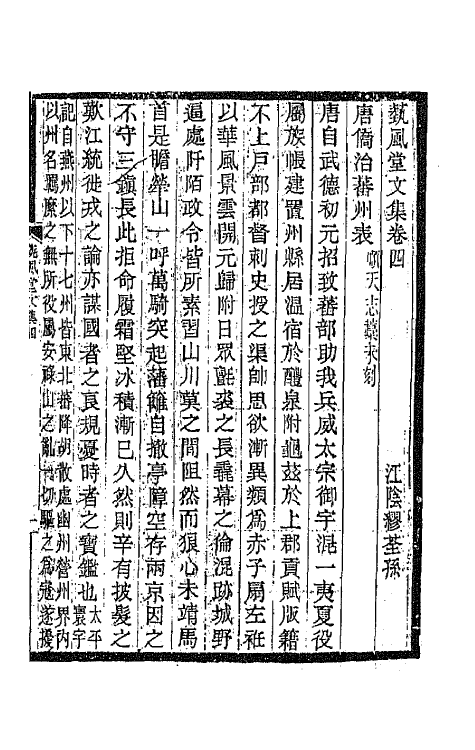 藝風堂文集卷四
江陰繆荃孫
唐僑治蕃州表順天志藁未刻
唐自武德初元招致蕃部助我兵威太宗御宇混一夷夏役
屬族帳建置州縣居溫宿於醴泉附龜茲於上郡貢賦版籍
不上戶部都督刺史授之渠帥思欲漸異類爲赤子扇左衽
以華風景雲開元歸附日眾氈裘之長毳幕之倫混跡城野
逼處阡陌政令皆所素習山川莫之間阻然而狼心未靖馬
首是瞻犖山一呼萬騎突起藩籬自撤亭障空存兩京因之
不守三鎭長此拒命履霜堅冰積漸已久然則辛有披髮之
歎江統徙戎之論亦謀國者之良規憂時者之寶鑑也太平寰宇
記自燕州以下十七州皆東北蕃降胡散處幽州營州界內
以州名羈縻之無所役屬安祿山之亂一切驅之爲寇遂擾
藝風堂文集四
一